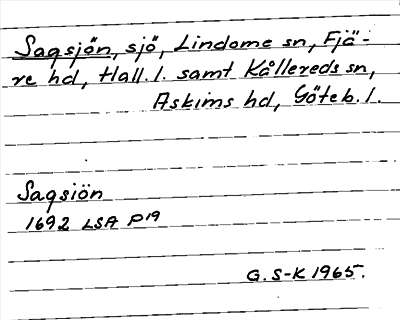 Sagsjön, sjö, Lindome sn, Fjä-
re hd, Hall. l. samt Kållereds sn,
Askims hd, Göteb. l.
Sagsiön
1692 LSA P19
G. S-K 1965.